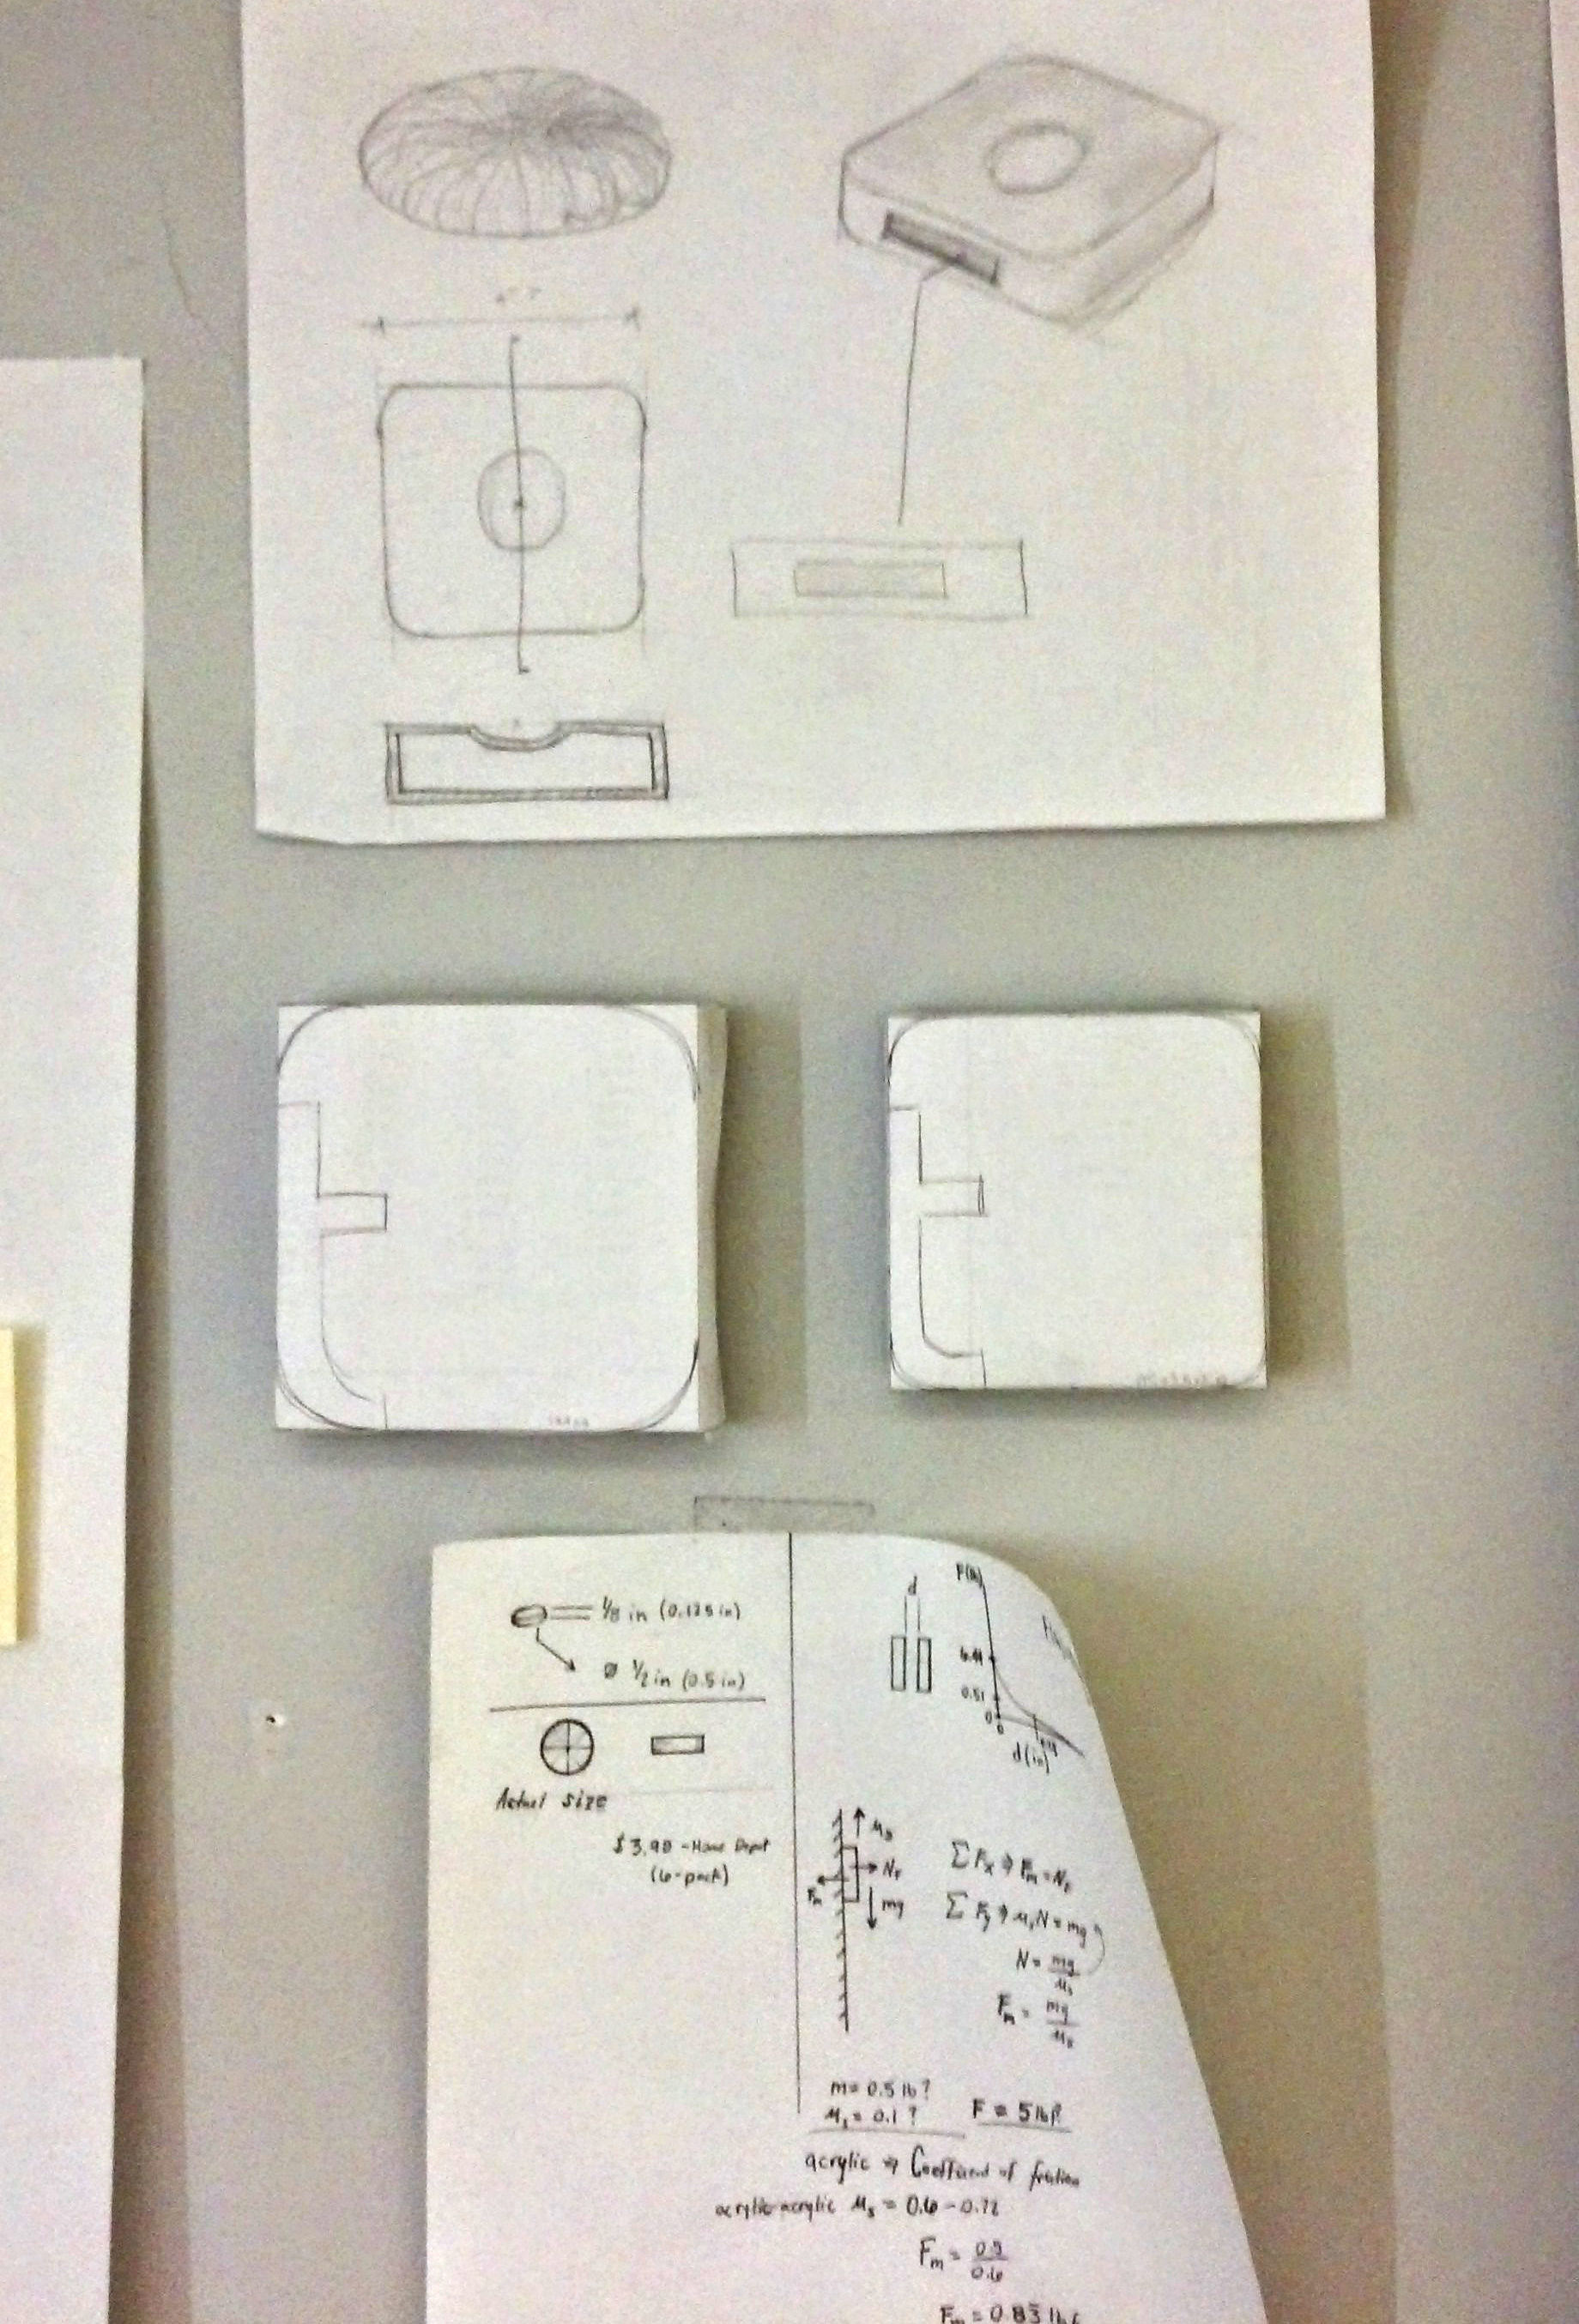 1/8 in (0.125 in)
ø 1/2 in (0.5 in)
Actual size
$3.98 - Home Depot
(6-pack)
d
F(lb)
0.51
0
0
d(in)
μs
Nf
Fm
mg
ΣFx ⇒ Fm = Nf
ΣFy ⇒ μsN = mg
N = mg/μs
Fm = mg/μs
m = 0.5 lb?
μs = 0.1?
F = 5 lbf
acrylic ⇒ Coefficient of friction
acrylic-acrylic μs = 0.6 - 0.72
Fm = 0.5/0.6
Fm = 0.83 lbf